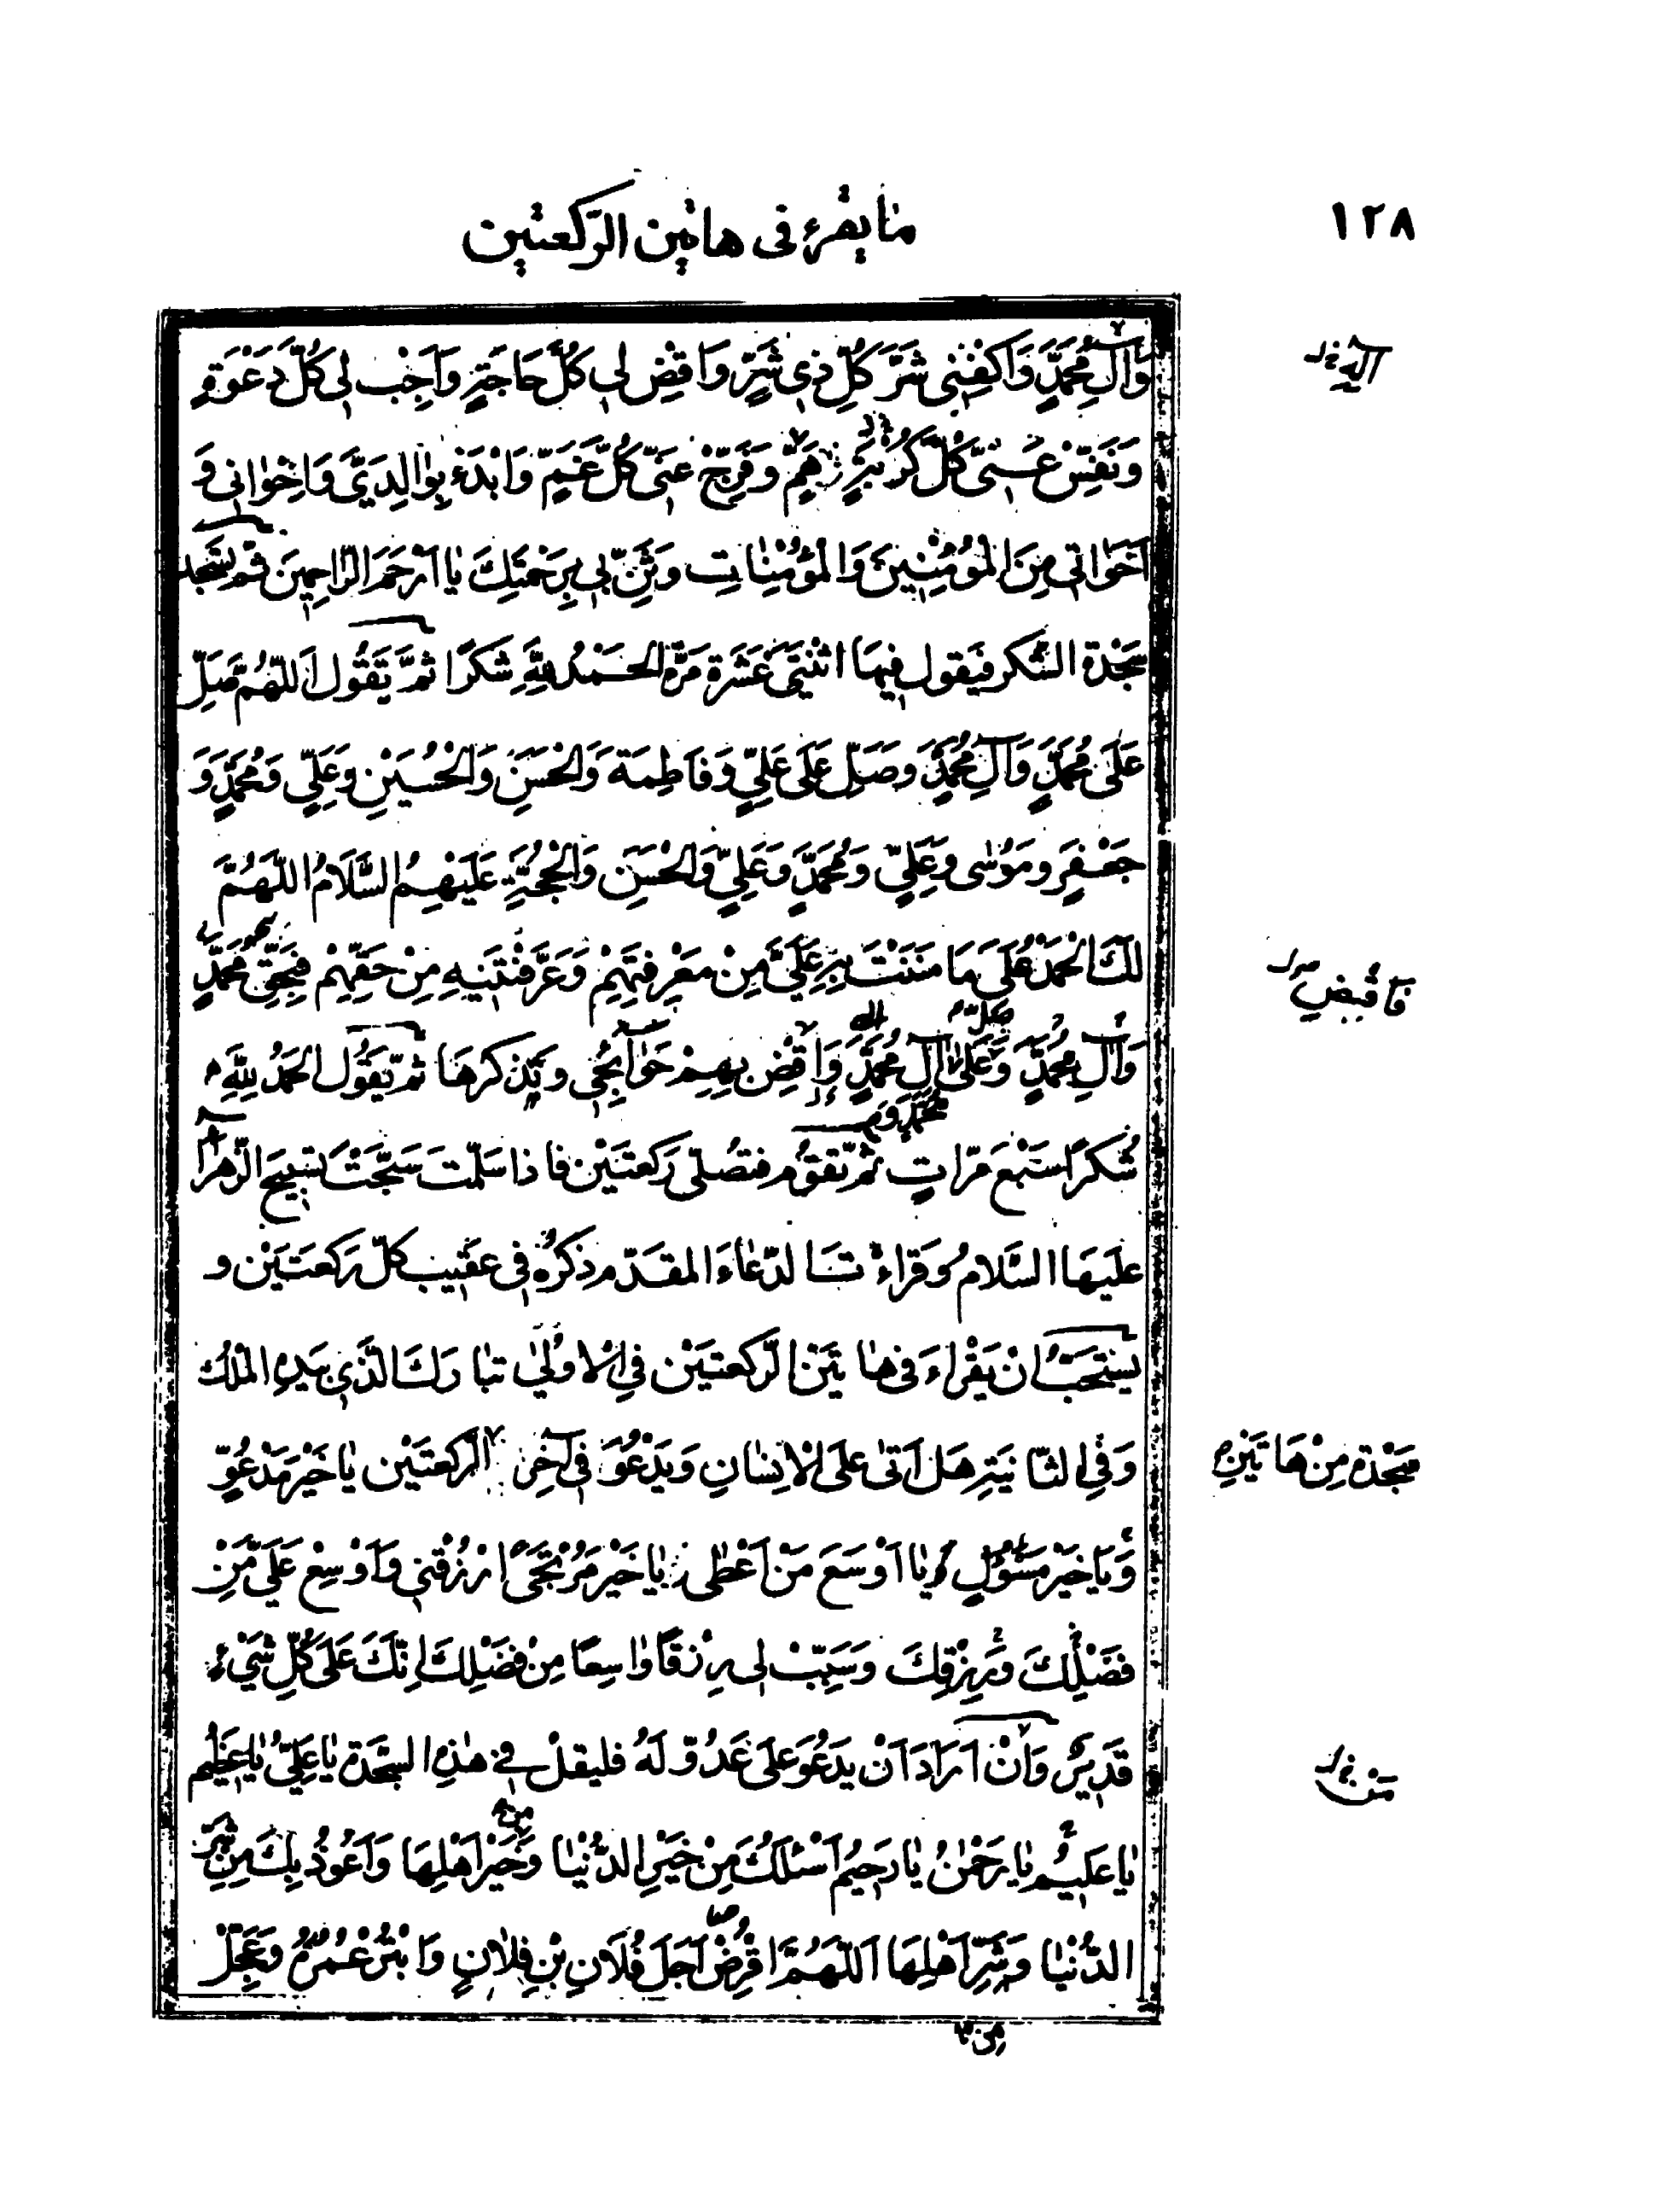 ١٢٨
ما يقرء فى هاتين الركعتين
وَآلِ مُحَمَّدٍ وَاكْفِنِى شَرَّ كُلِّ ذِى شَرٍّ وَاقْضِ لِى كُلَّ حَاجَةٍ وَاَجِبْ لِى كُلَّ دَعْوَةٍ
وَنَفِّسْ عَنِّى كُلَّ كُرْبَةٍ هَمٍّ وَفَرِّجْ عَنِّى كُلَّ غَمٍّ وَابْدَءْ بِوٰالِدَيَّ وَاِخْوٰانِى وَ
اَخَوٰاتِى مِنَ الْمُؤْمِنِينَ وَالْمُؤْمِنٰاتِ وَثَنِّ بِى بِرَحْمَتِكَ يٰا اَرْحَمَ الرّٰاحِمِينَ ثم تسجد
سَجْدة الشكر فيَقول فيهَا اثنتَى عَشَرَة مَرّة الحَمْدُ لِلّٰهِ شكرًا ثمّ يَقُول اَللّٰهُمَّ صَلِّ
عَلَى مُحَمَّدٍ وَآلِ مُحَمَّدٍ وَصَلِّ عَلَى عَلِيٍّ وَفَاطِمَة وَالْحَسَنِ وَالْحُسَيْنِ وَعَلِيٍّ وَمُحَمَّدٍ وَ
جَعْفَرٍ وَمُوسٰى وَعَلِيٍّ وَمُحَمَّدٍ وَعَلِيٍّ وَالْحَسَنِ وَالْحُجَّةِ عَلَيْهِمُ السَّلَامُ اللّٰهُمَّ
لَكَ الْحَمْدُ عَلَى مَا مَنَنْتَ بِهِ عَلَيَّ مِنْ مَعْرِفَتِهِمْ وَعَرَّفْتَنِيهِ مِنْ حَقِّهِمْ فَبِحَقِّ مُحَمَّدٍ
فَاقْبِضِ
وَآلِ مُحَمَّدٍ وَعَلىٰ آلِ مُحَمَّدٍ وَاقْضِ بِهِمْ حَوٰائِجِى وَتذكرهَا ثمّ يَقُول الحَمْدُ لِلّٰهِ
شُكْرًا سَبْعَ مَرّاتٍ ثمّ تقوُم فتصُلّى رَكعتَيْن فاذا سَلّمتَ سَبّحَتْ تسبيحَ الزهرا
عليهَا السَّلامُ وَقراءْتَ الدّعٰاءَ المقدّم ذكرُه فى عقيب كلّ ركعَتَيْن و
يستحَبّ انْ يَقْراءَ فى هٰاتَيْن الرّكعتَيْن فِى الاُولىٰ تبٰارَكَ الّذى بيَدِهِ الملكُ
وَفِى الثّانيَةِ هَل اَتىٰ عَلَى الْاِنسٰانِ وَيَدْعُوَ فى آخِر الرّكعتَيْن يٰا خَيْرَ مَدْعُوٍّ
سَجْدة مِنْ هَاتَيْنِ
وَيٰا خَيْرَ مَسْؤُلٍ يٰا اَوْسَعَ مَنْ اَعْطٰى يٰا خَيْرَ مُرْتَجَىً ارْزُقْنِى وَاَوْسِعْ عَلَيَّ مِنْ
فَضْلِكَ وَرِزْقِكَ وَسَبِّبْ لِى رِزْقًا وٰاسِعًا مِنْ فَضْلِكَ اِنَّكَ عَلَى كُلِّ شَيْءٍ
قَدِيرٌ وَاِنْ اَرَادَ اَنْ يَدعُوَ عَلَى عَدُوّ لَهُ فليقلْ فى هٰذِهِ السَّجْدَةِ يٰا عَلِيُّ يٰا عَظِيم
يٰا عَلِيمُ يٰا رَحْمٰنُ يٰا رَحِيمُ اَسْئَلُكَ مِنْ خَيْرِ الدُّنْيٰا وَخَيْرِ اَهْلِهَا وَاَعُوذُ بِكَ مِنْ شَرِّ
الدُّنْيٰا وَشَرِّ اَهْلِهَا اَللّٰهُمَّ اقْرِضْ اَجَلَ فُلَانِ بْنِ فُلٰانٍ وَابْتُرْ عُمُرَهُ وَعَجِّلْ